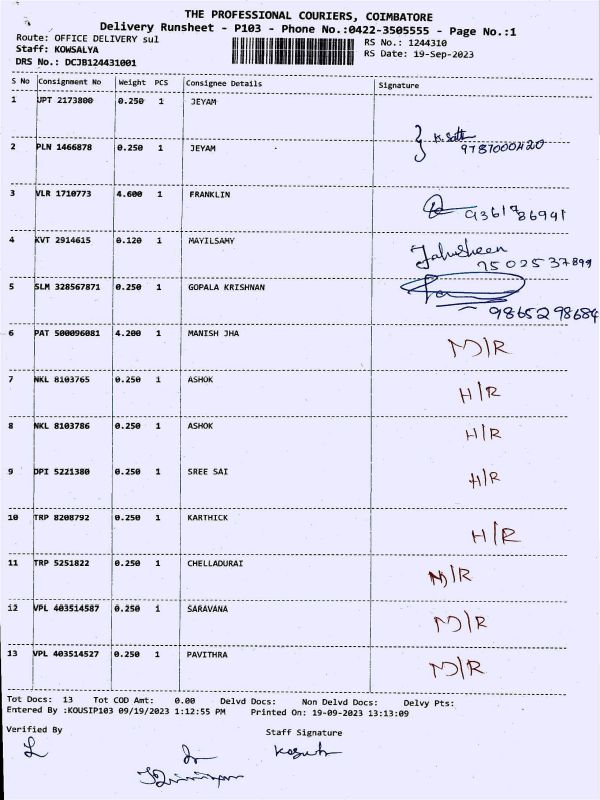 THE PROFESSIONAL COURIERS, COIMBATORE
Delivery Runsheet - P103 - Phone No.:0422-3505555 - Page No.:1
Route: OFFICE DELIVERY sul RS No.: 1244310
Staff: KOWSALYA RS Date: 19-Sep-2023
DRS No.: DCJB124431001
S No Consignment No Weight PCS Consignee Details Signature
1 UPT 2173800 0.250 1 JEYAM
2 PLN 1466878 0.250 1 JEYAM 9787000420
3 VLR 1710773 4.600 1 FRANKLIN 9361786941
4 KVT 2914615 0.120 1 MAYILSAMY 7502537899
5 SLM 328567871 0.250 1 GOPALA KRISHNAN 9865298684
6 PAT 500096081 4.200 1 MANISH JHA M/R
7 NKL 8103765 0.250 1 ASHOK H/R
8 NKL 8103786 0.250 1 ASHOK H/R
9 DPI 5221380 0.250 1 SREE SAI H/R
10 TRP 8208792 0.250 1 KARTHICK H/R
11 TRP 5251822 0.250 1 CHELLADURAI M/R
12 VPL 403514587 0.250 1 SARAVANA M/R
13 VPL 403514527 0.250 1 PAVITHRA M/R
Tot Docs: 13 Tot COD Amt: 0.00 Delvd Docs: Non Delvd Docs: Delvy Pts:
Entered By :KOUSIP103 09/19/2023 1:12:55 PM Printed On: 19-09-2023 13:13:09
Verified By Staff Signature